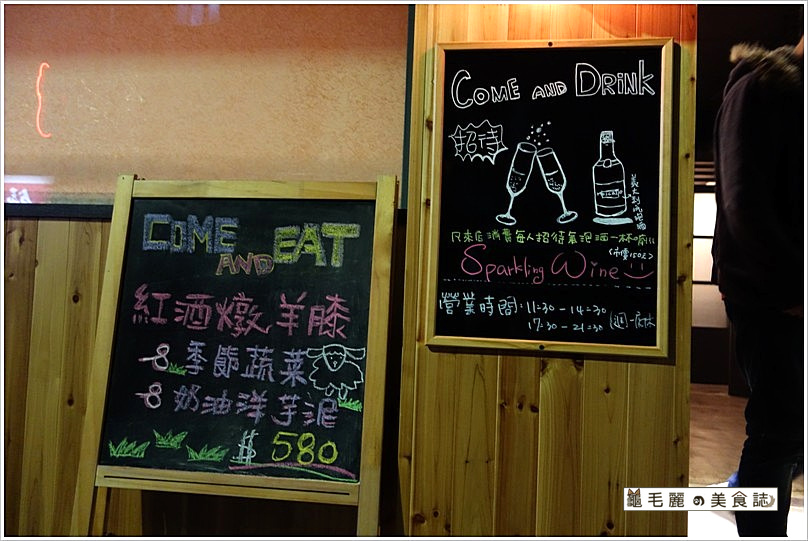 COME AND EAT
紅酒燉羊膝
&季節蔬菜
&奶油洋芋泥
$580
COME AND DRINK
招待
義大利氣泡酒
只來店消費每人招待氣泡酒一杯喲!!
(市價150元)
Sparkling Wine
營業時間:11:30-14:30
17:30-21:30 (週一店休)
龜毛麗の美食誌